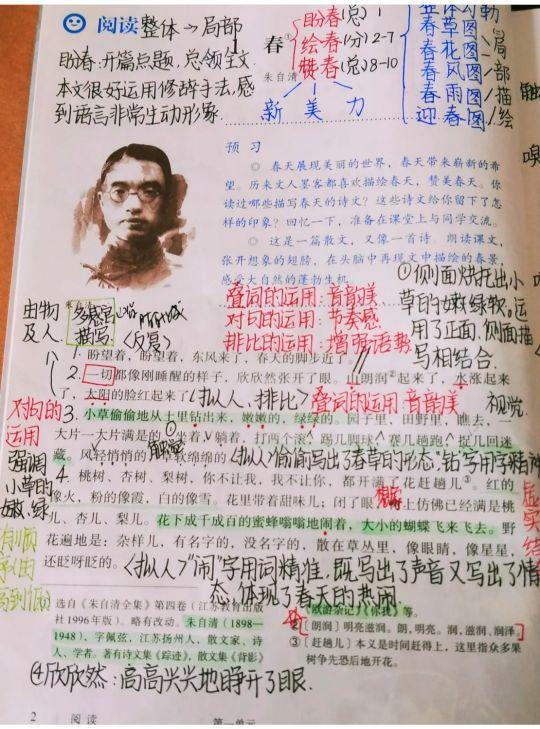 阅读 整体→局部
春①
朱自清
盼春(总)1
绘春(分)2-7
赞春(总)8-10
新 美 力
春草图
春花图
春风图
春雨图
迎春图
局部描绘
盼春:开篇点题,总领全文.
本文很好运用修辞手法,感
到语言非常生动形象
预 习
◎ 春天展现美丽的世界,春天带来崭新的希
望。历来文人墨客都喜欢描绘春天,赞美春天。你
读过哪些描写春天的诗文?这些诗文给你留下了怎
样的印象?回忆一下,准备在课堂上与同学交流。
◎ 这是一篇散文,又像一首诗。朗读课文,
张开想象的翅膀,在头脑中再现文中描绘的春景,
感受大自然的蓬勃生机。
①侧面烘托出小
草的嫩绿软。运
用了正面、侧面描
写相结合.
叠词的运用:音韵美
对句的运用:节奏感
排比的运用:增强语势
由物
及人
朱自清
多感官
描写
(反复)
1.盼望着,盼望着,东风来了,春天的脚步近了
2.一切都像刚睡醒的样子,欣欣然张开了眼。山朗润②起来了,水涨起来
了,太阳的脸红起来了
(拟人、排比)
叠词的运用:音韵美
视觉
对句的
运用
强调
小草的
嫩,绿
3.小草偷偷地从土里钻出来,嫩嫩的,绿绿的。园子里,田野里,瞧去,一
大片一大片满是的。坐着,躺着,打两个滚,踢几脚球,赛几趟跑,捉几回迷
藏。风轻悄悄的,草软绵绵的
(拟人)"偷偷"写出了春草的形态"钻"字用字精准
4.桃树、杏树、梨树,你不让我,我不让你,都开满了花赶趟儿③。红的
像火,粉的像霞,白的像雪。花里带着甜味儿;闭了眼,树上仿佛已经满是桃
儿、杏儿、梨儿。花下成千成百的蜜蜂嗡嗡地闹着,大小的蝴蝶飞来飞去。野
花遍地是:杂样儿,有名字的,没名字的,散在草丛里,像眼睛,像星星,
还眨呀眨的。
(拟人)"闹"字用词精准,既写出了声音又写出了情
态,体现了春天的热闹.
虚实结
选自《朱自清全集》第四卷(江苏教育出版
社1996年版)。略有改动。朱自清(1898—
1948),字佩弦,江苏扬州人,散文家、诗
人、学者。著有诗文集《踪迹》,散文集《背影》
《欧游杂记》《你我》等。
②[朗润]明亮滋润。朗,明亮。润,滋润、润泽。
③[赶趟儿]本义是时间赶得上,这里指众多果
树争先恐后地开花。
④欣欣然:高高兴兴地睁开了眼.
2 阅读 第一单元